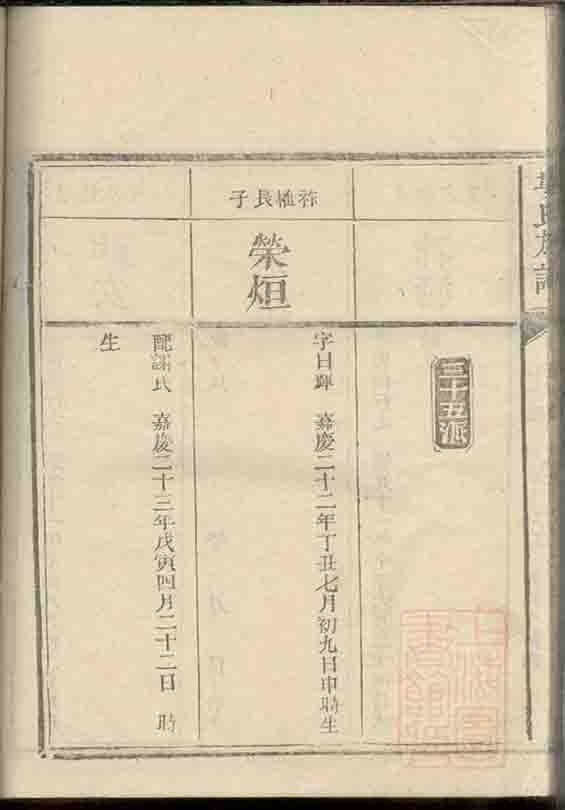 氏族譜
三十五派
子長權祚
榮烜
字日暉 嘉慶二十二年丁丑七月初九日申時生
配謝氏 嘉慶二十三年戊寅四月二十二日 時
生